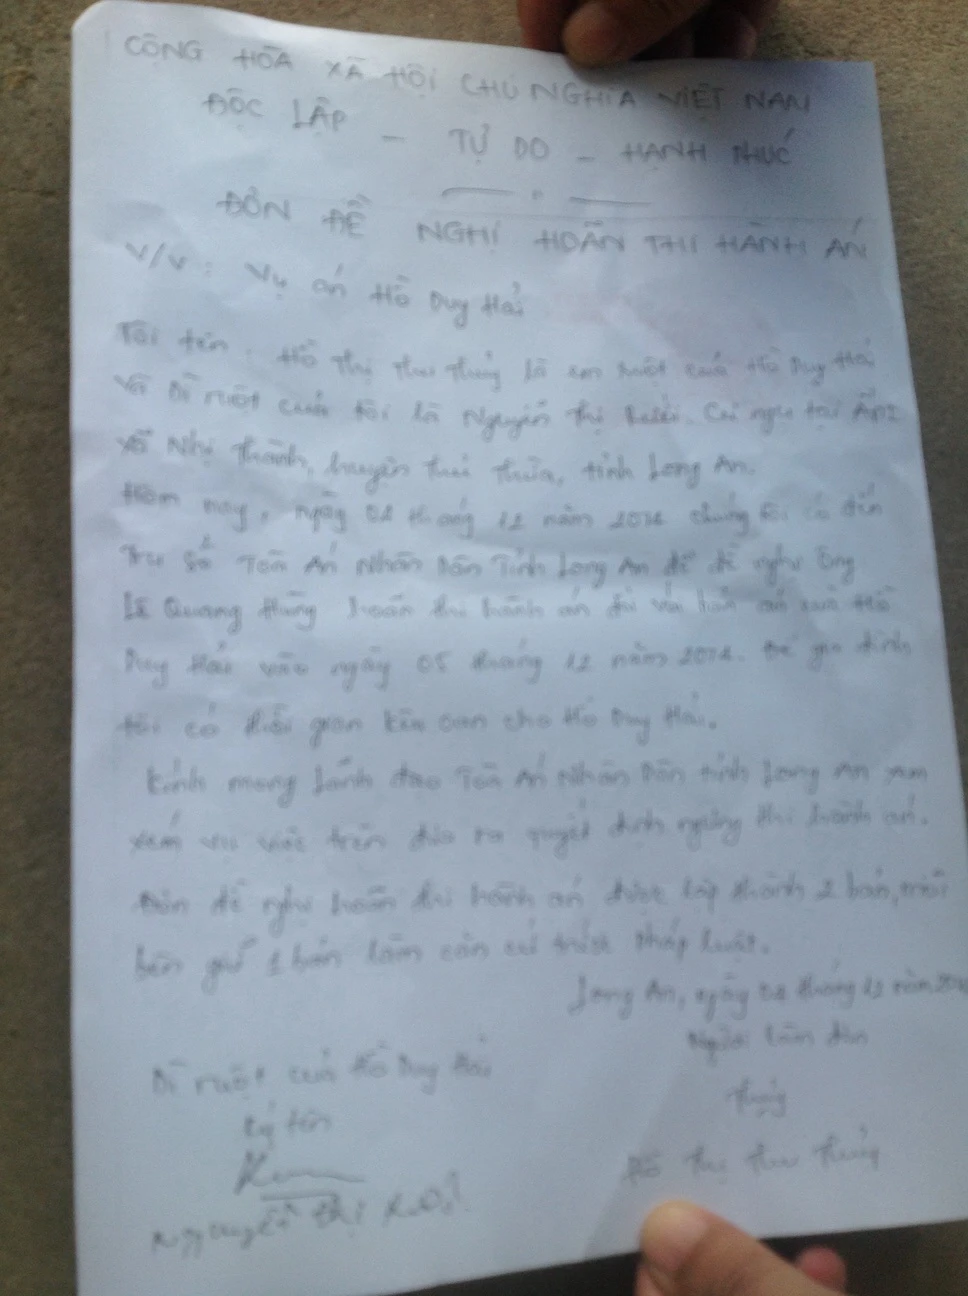 CỘNG HÒA XÃ HỘI CHỦ NGHĨA VIỆT NAM
ĐỘC LẬP - TỰ DO - HẠNH PHÚC
ĐÔN ĐỀ NGHỊ HOÃN THI HÀNH ÁN
V/v : Vụ án Hồ Duy Hải
Tôi tên : Hồ Thị Thu Thủy là em ruột của Hồ Duy Hải
và Dì ruột của tôi là Nguyễn Thị Cư ngụ tại Ấp 2
xã Nhị Thành, huyện Thủ Thừa, tỉnh Long An.
Hôm nay, ngày 02 tháng 12 năm 2014 chúng tôi có đến
Trụ Sở Tòa Án Nhân Dân Tỉnh Long An để đề nghị Ông
Lê Quang Hùng hoãn thi hành án đối với bản án của Hồ
Duy Hải vào ngày 05 tháng 12 năm 2014. Để gia đình
tôi có thời gian kêu oan cho Hồ Duy Hải.
Kính mong Lãnh đạo Tòa Án Nhân Dân tỉnh Long An xem
xém vụ việc trên đưa ra quyết định ngừng thi hành án.
Đơn đề nghị hoãn thi hành án được lập thành 2 bản, mỗi
bên giữ 1 bản làm căn cứ trước Pháp luật.
Long An, ngày 02 tháng 12 năm
Người làm đơn
Dì ruột của Hồ Duy Hải
Thủy
Ký tên
Hồ Thị Thu Thủy
Nguyễn Thị